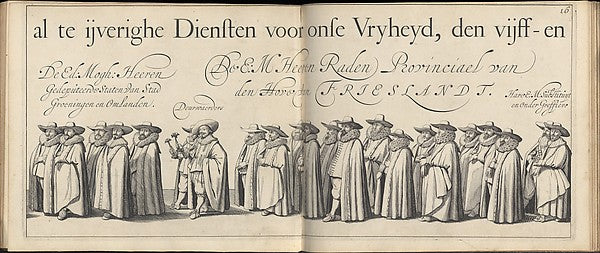 16
al te ijverighe Diensten voor onse Vryheyd, den vijff-en
De Ed: Mogh: Heeren
Gedeputeerde Staten van Stad
Groeningen en Omlanden.
Deurwaerders
De E. M. Heeren Raden Provinciael van
den Hove van FRIESLANDT.
Hare E. M. Substituut
en onder Greffiers